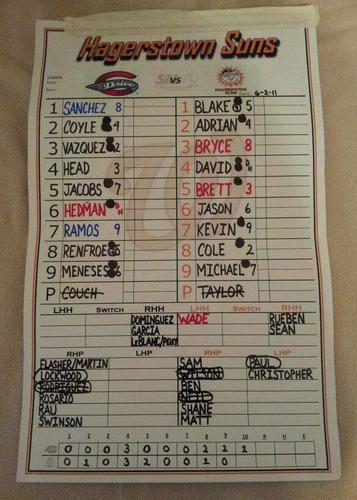 Hagerstown Suns
Drive VS HAGERSTOWN SUNS Date: 6-2-11
1 SANCHEZ 8 1 BLAKE 5
2 COYLE 4 2 ADRIAN 4
3 VAZQUEZ 2 3 BRYCE 8
4 HEAD 3 4 DAVID DH
5 JACOBS 7 5 BRETT 3
6 HEDMAN DH 6 JASON 6
7 RAMOS 9 7 KEVIN 9
8 RENFROE 5 8 COLE 2
9 MENESES 6 9 MICHAEL 7
P COUCH P TAYLOR
LHH SWITCH RHH LHH SWITCH RHH
DOMINGUEZ WADE RUEBEN
GARCIA SEAN
LeBLANC/PERRY
RHP LHP RHP LHP
FLASHER/MARTIN SAM PAUL
LOCKWOOD WILSON CHRISTOPHER
RODRIGUEZ BEN
ROSARIO NEIL
RAU SHANE
SWINSON MATT
1 2 3 4 5 6 7 8 9 10 R H E
0 0 0 3 0 0 0 2 2 1
0 1 0 3 2 0 0 1 0